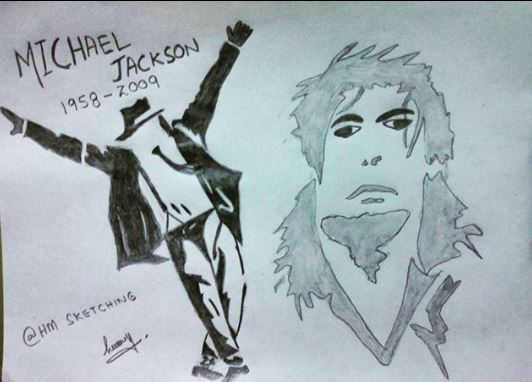 MICHAEL
JACKSON
1958-2009
@HM SKETCHING